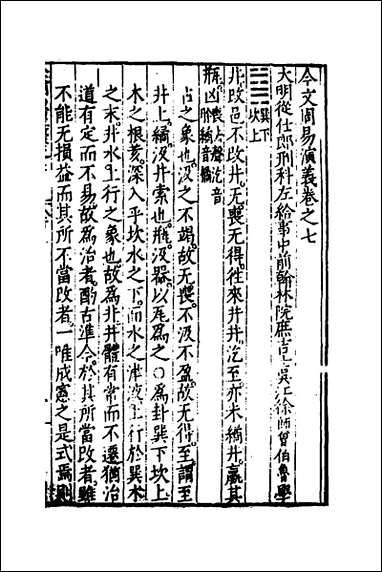 今文周易演義卷之七
大明從仕郎刑科左給事中前翰林院庶吉士吳江徐師曾伯魯學
巽下
坎上
井改邑不改井无喪无得往來井井汔至亦未繘井羸其
瓶凶 喪去聲汔音
占之象也汲之不竭故无喪不汲不盈故无得至謂至
井上繘汲井索也瓶汲器以瓦為之〇為卦巽下坎上
木之根荄深入乎坎水之下而水之津液上行於巽木
之末井水上行之象也故為井井體有常而不遷猶治
道有定而不易故為治者酌古準今於其所當改者雖
不能无損益而其所不當改者一唯成憲之是式焉則